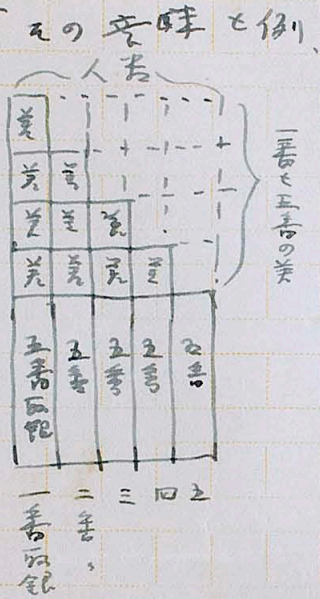 その意味と例、
人数
差
差 差
差 差 差
差 差 差 差
一番と五番の差
五番取銀 五番 五番 五番 五番
一番取銀 二番、 三 四 五